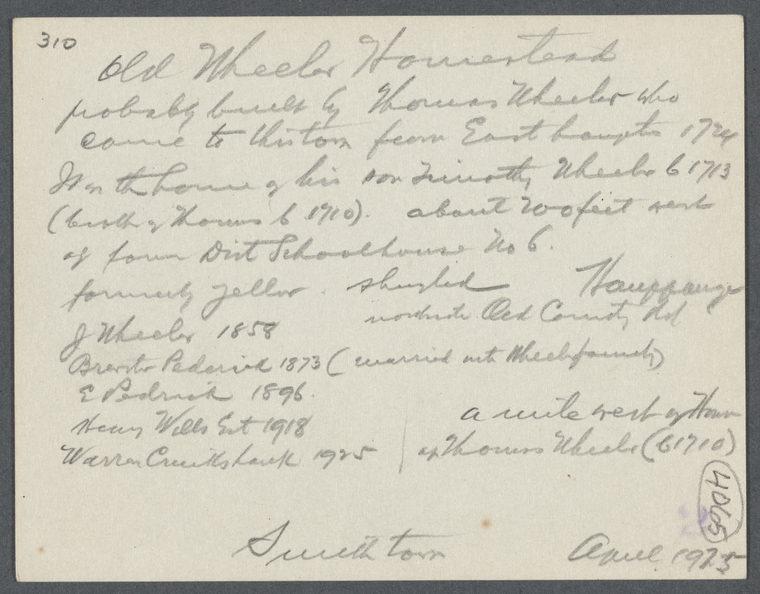 310
Old Wheeler Homestead
probably built by Thomas Wheeler who
came to this town from East hampton 1724
Was the home of his son Timothy Wheeler b 1713
(broth of Thomas b 1710). about 200 feet west
of form Dist Schoolhouse No 6.
formerly yellow. shingled Hauppauge
northside Old County Rd
J Wheeler 1858
Brewster Pedrick 1873 (married into Wheeler family)
E Pedrick 1896.
Henry Wills Est 1918
Warren Cruikshank 1925
a mile west of Home
of Thomas Wheeler (b 1710)
4065
Smithtown April 1925